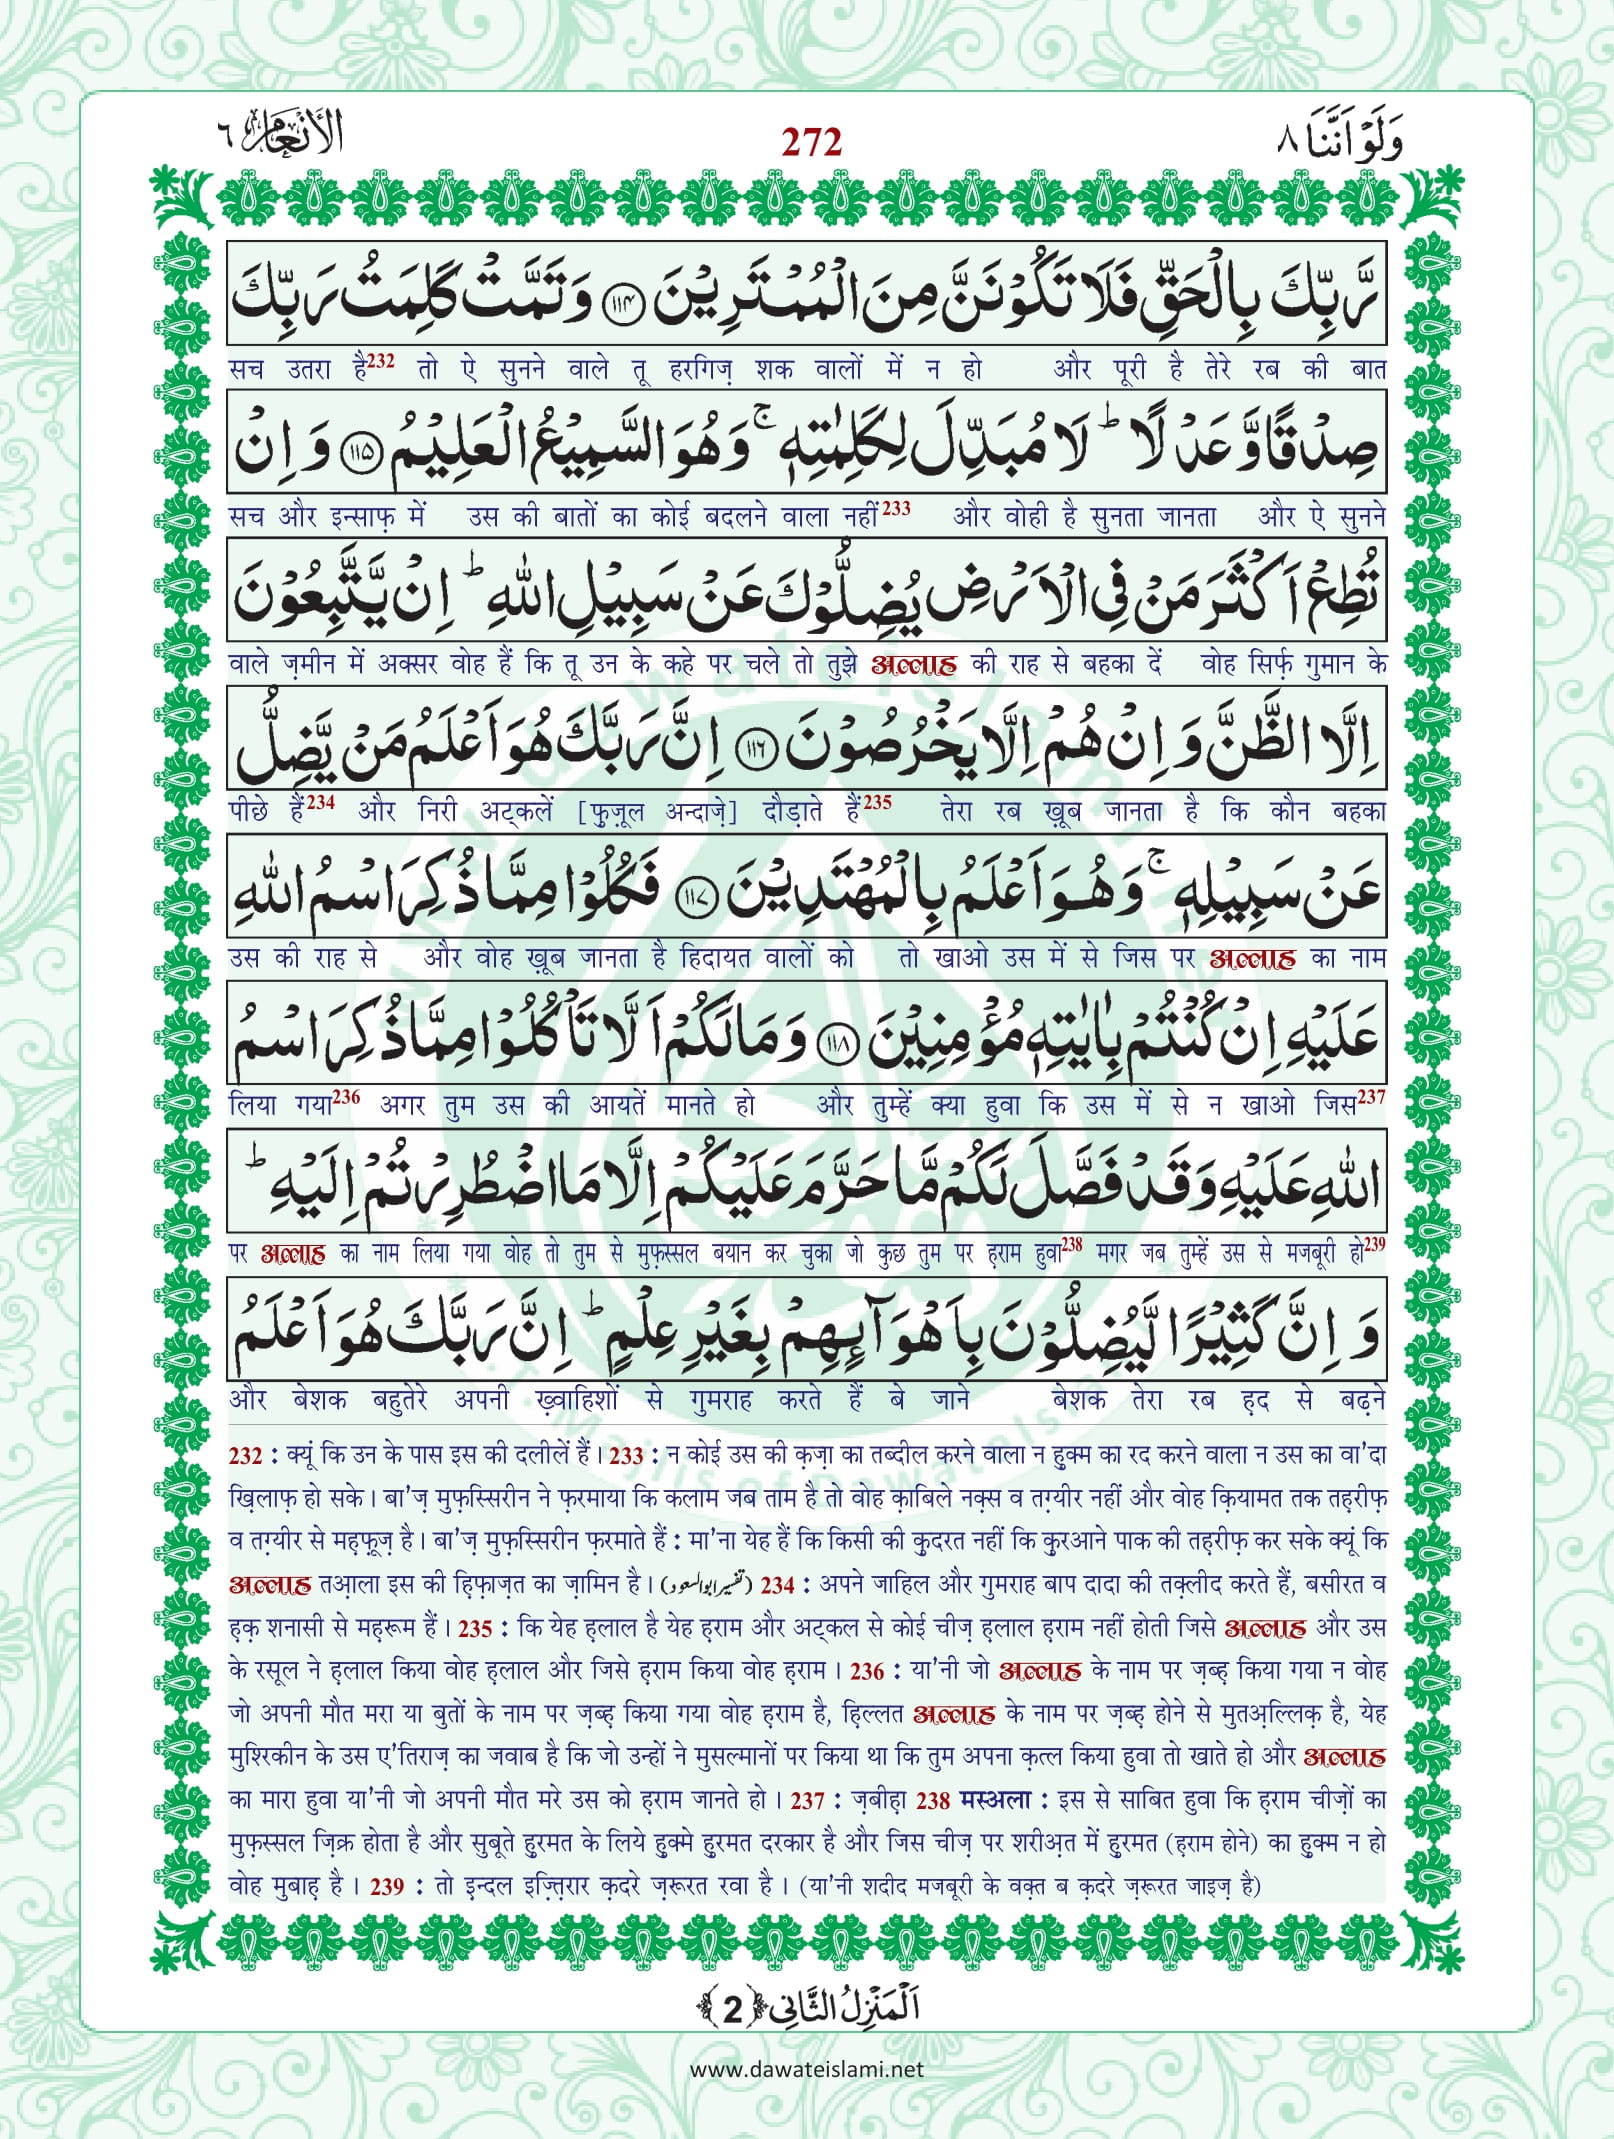 وَلَوْ اَنَّنَا ٨
272
الأَنْعَام ٦
رَّبِّكَ بِالْحَقِّ فَلَا تَكُوْنَنَّ مِنَ الْمُمْتَرِیْنَ ﴿۱۱۴﴾ وَ تَمَّتْ كَلِمَتُ رَبِّكَ
सच उतरा है232 तो ऐ सुनने वाले तू हरगिज़ शक वालों में न हो और पूरी है तेरे रब की बात
صِدْقًا وَّ عَدْلًاؕ لَا مُبَدِّلَ لِكَلِمٰتِهٖۚ وَ هُوَ السَّمِیْعُ الْعَلِیْمُ ﴿۱۱۵﴾ وَ اِنْ
सच और इन्साफ़ में उस की बातों का कोई बदलने वाला नहीं233 और वोही है सुनता जानता और ऐ सुनने
تُطِعْ اَكْثَرَ مَنْ فِی الْاَرْضِ یُضِلُّوْكَ عَنْ سَبِیْلِ اللّٰهِؕ اِنْ یَّتَّبِعُوْنَ
वाले ज़मीन में अक्सर वोह हैं कि तू उन के कहे पर चले तो तुझे अल्लाह की राह से बहका दें वोह सिर्फ़ गुमान के
اِلَّا الظَّنَّ وَ اِنْ هُمْ اِلَّا یَخْرُصُوْنَ ﴿۱۱۶﴾ اِنَّ رَبَّكَ هُوَ اَعْلَمُ مَنْ یَّضِلُّ
पीछे हैं234 और निरी अट्कलें [फ़ुज़ूल अन्दाज़े] दौड़ाते हैं235 तेरा रब ख़ूब जानता है कि कौन बहका
عَنْ سَبِیْلِهٖۚ وَ هُوَ اَعْلَمُ بِالْمُهْتَدِیْنَ ﴿۱۱۷﴾ فَكُلُوْا مِمَّا ذُكِرَ اسْمُ اللّٰهِ
उस की राह से और वोह ख़ूब जानता है हिदायत वालों को तो खाओ उस में से जिस पर अल्लाह का नाम
عَلَیْهِ اِنْ كُنْتُمْ بِاٰیٰتِهٖ مُؤْمِنِیْنَ ﴿۱۱۸﴾ وَ مَا لَكُمْ اَلَّا تَاْكُلُوْا مِمَّا ذُكِرَ اسْمُ
लिया गया236 अगर तुम उस की आयतें मानते हो और तुम्हें क्या हुवा कि उस में से न खाओ जिस237
اللّٰهِ عَلَیْهِ وَ قَدْ فَصَّلَ لَكُمْ مَّا حَرَّمَ عَلَیْكُمْ اِلَّا مَا اضْطُرِرْتُمْ اِلَیْهِؕ
पर अल्लाह का नाम लिया गया वोह तो तुम से मुफ़स्सल बयान कर चुका जो कुछ तुम पर ह़राम हुवा238 मगर जब तुम्हें उस से मजबूरी हो239
وَ اِنَّ كَثِیْرًا لَّیُضِلُّوْنَ بِاَهْوَآىِٕهِمْ بِغَیْرِ عِلْمٍؕ اِنَّ رَبَّكَ هُوَ اَعْلَمُ
और बेशक बहुतेरे अपनी ख़्वाहिशों से गुमराह करते हैं बे जाने बेशक तेरा रब ह़द से बढ़ने
232 : क्यूं कि उन के पास इस की दलीलें हैं। 233 : न कोई उस की क़ज़ा का तब्दील करने वाला न हुक्म का रद करने वाला न उस का वा'दा
ख़िलाफ़ हो सके। बा'ज़ मुफ़स्सिरीन ने फ़रमाया कि कलाम जब ताम है तो वोह क़ाबिले नक़्स व तग़्यीर नहीं और वोह क़ियामत तक तह़रीफ़
व तग़्यीर से मह़फ़ूज़ है। बा'ज़ मुफ़स्सिरीन फ़रमाते हैं : मा'ना येह हैं कि किसी की क़ुदरत नहीं कि क़ुरआने पाक की तह़रीफ़ कर सके क्यूं कि
अल्लाह तआ़ला इस की ह़िफ़ाज़त का ज़ामिन है। (تفسیر ابوالسعود) 234 : अपने जाहिल और गुमराह बाप दादा की तक़्लीद करते हैं, बसीरत व
ह़क़ शनासी से मह़रूम हैं। 235 : कि येह ह़लाल है येह ह़राम और अट्कल से कोई चीज़ ह़लाल ह़राम नहीं होती जिसे अल्लाह और उस
के रसूल ने ह़लाल किया वोह ह़लाल और जिसे ह़राम किया वोह ह़राम। 236 : या'नी जो अल्लाह के नाम पर ज़ब्ह़ किया गया न वोह
जो अपनी मौत मरा या बुतों के नाम पर ज़ब्ह़ किया गया वोह ह़राम है, ह़िल्लत अल्लाह के नाम पर ज़ब्ह़ होने से मुतअ़ल्लिक़ है, येह
मुश्रिकीन के उस ए'तिराज़ का जवाब है कि जो उन्हों ने मुसल्मानों पर किया था कि तुम अपना क़त्ल किया हुवा तो खाते हो और अल्लाह
का मारा हुवा या'नी जो अपनी मौत मरे उस को ह़राम जानते हो। 237 : ज़बीह़ा 238 मस्अला : इस से साबित हुवा कि ह़राम चीज़ों का
मुफ़स्सल ज़िक्र होता है और सुबूते हुरमत के लिये हुक्मे हुरमत दरकार है और जिस चीज़ पर शरीअ़त में हुरमत (ह़राम होने) का हुक्म न हो
वोह मुबाह़ है। 239 : तो इन्दल इज़्तिरार क़दरे ज़रूरत रवा है। (या'नी शदीद मजबूरी के वक़्त ब क़दरे ज़रूरत जाइज़ है)
اَلْمَنْزِلُ الثَّانِی ﴿2﴾
www.dawateislami.net